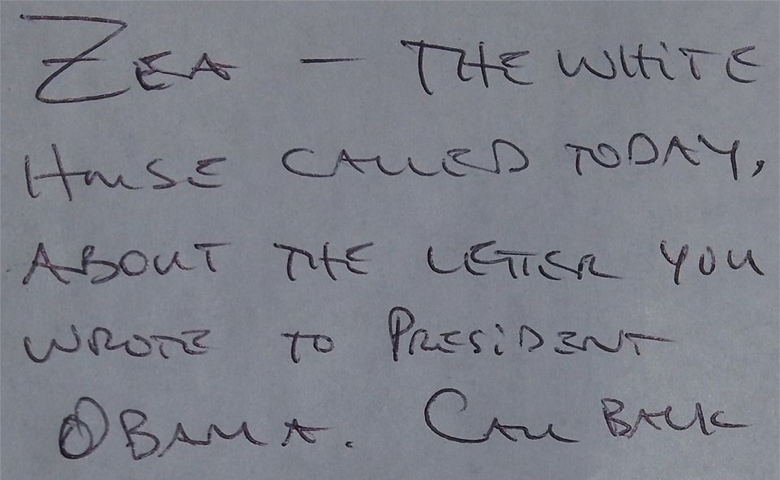 ZEA – THE WHiTE
HOUSE CALLED TODAY,
ABOUT THE LETTER YOU
WROTE TO PRESiDENT
OBAMA. CALL BACK